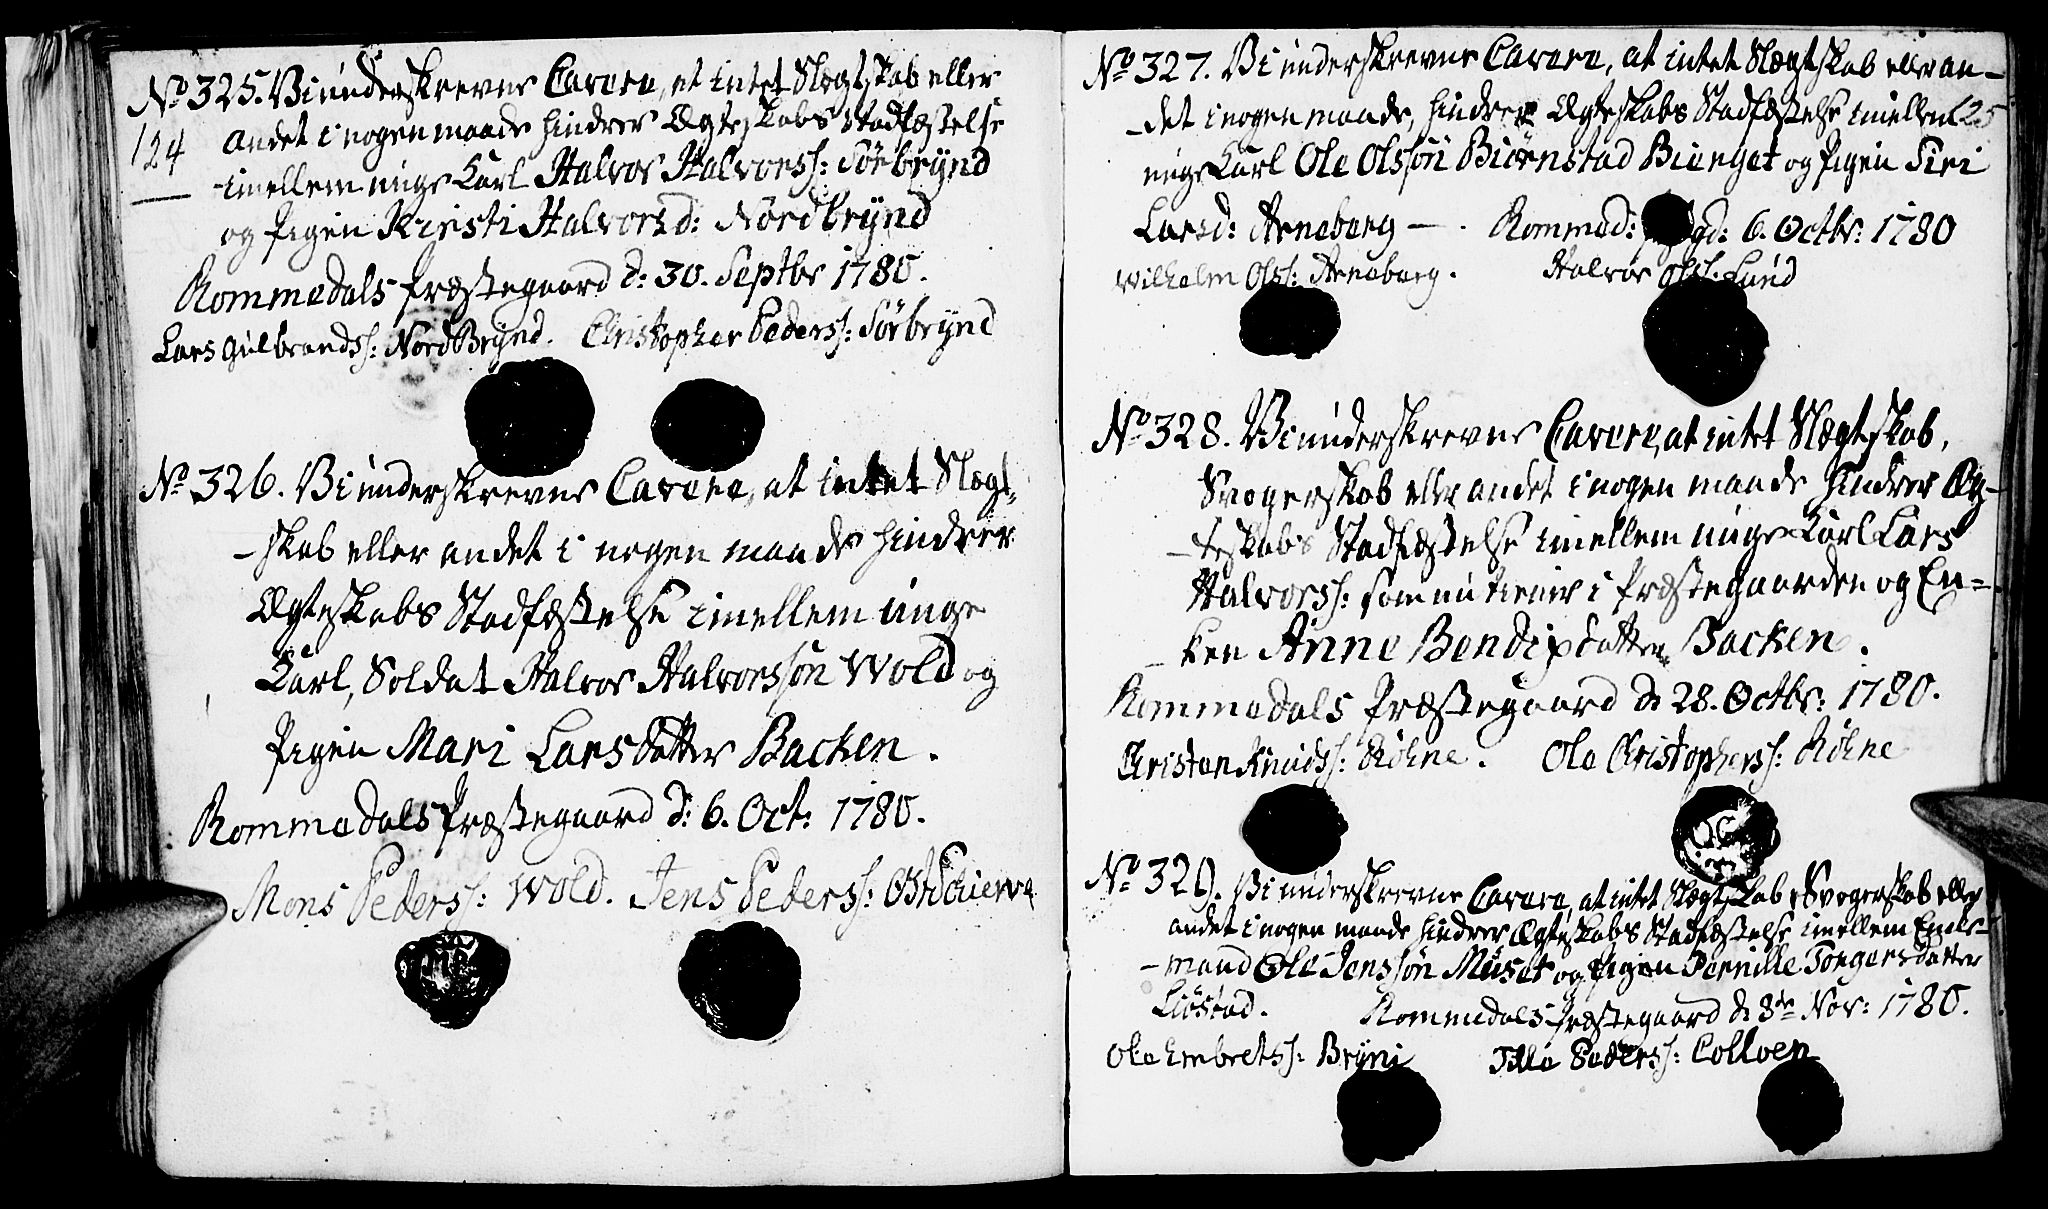 No 325. Vi underskrevne Cavere, at intet Slægtskab eller
124 andet i nogen maade hindrer Ægteskabs Stadfæstelse
imellem unge Karl Halvor Halvorss: Sörbrynd
og Pigen Kirsti Halvorsd: Nordbrÿnd
Rommedals Præstegaard d: 30. Septbr 1780.
Lars Gulbrandss: NordBrÿnd. Christopher Pederss: Sörbrÿnd
No 326. Vi underskrevne Cavere, at intet Slægt-
-skab eller andet i nogen maade hindrer
Ægteskabs Stadfæstelse imellem unge
Karl, Soldat Halvor Halvorssön Wold og
Pigen Mari Larsdatter Backen.
Rommedals Præstegaard d: 6. Oct: 1780.
Mons Pederss: Wold. Jens Pederss:
No 327. Vi underskrevne Cavere, at intet Slægtskab eller an-
-det i nogen maade, hindrer Ægteskabs Stadfæstelse imellem 125
unge Karl Ole Olssön Biörnstad Bienget og Pigen Siri
Larsd: Arneberg —. Rommed: d: 6. Octbr: 1780
Wilhelm Olss: Arneberg. Halvor Olss: Lund
No 328. Vi underskrevne Cavere, at intet Slægtskab,
Svogerskab eller andet i nogen maade hindrer Æg-
-teskabs Stadfæstelse imellem unge Karl Lars
Halvorss: som nu tiener i Præstegaarden og En-
-ken Anne Bendixdatter Backen.
Rommedals Præstegaard d: 28. Octbr: 1780.
Christen Knudss: Röhne. Ole Christopherss: Röhne
No 329. Vi underskrevne Cavere, at intet Slægtskab, Svogerskab eller
andet i nogen maade hindrer Ægteskabs Stadfæstelse imellem Enke-
-mand Ole Jenssön Muset og Pigen Pernille Tongersdatter
Liöstad. Rommedals Præstegaard d: 8de Nov: 1780.
Ole Embretss: Brÿni Pederss: